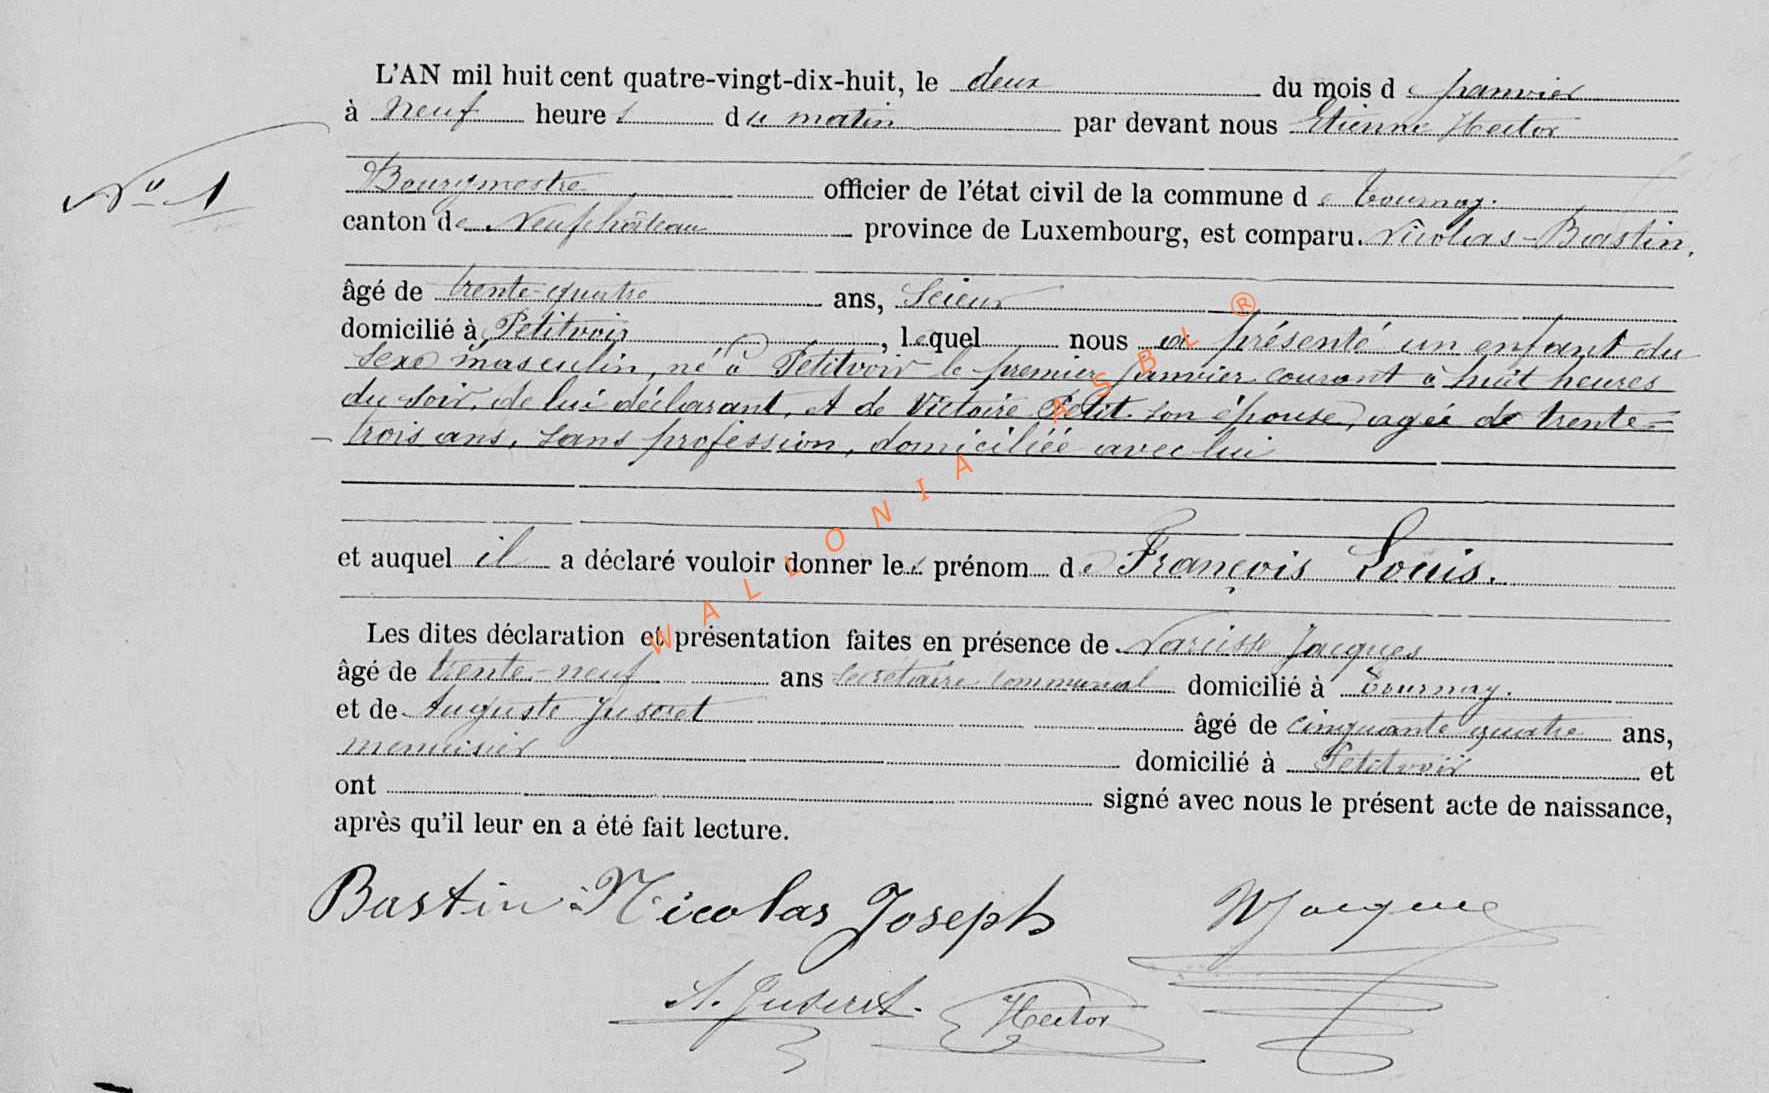 L'AN mil huit cent quatre-vingt-dix-huit, le deux du mois de janvier
à neuf heures du matin par devant nous Etienne Hector
N° 1
Bourgmestre officier de l'état civil de la commune de Tournay.
canton de Neufchâteau province de Luxembourg, est comparu Nicolas Bastin,
âgé de trente-quatre ans, Scieur
domicilié à Petitvoir, lequel nous a présenté un enfant du
sexe masculin, né à Petitvoir le premier janvier courant à huit heures
du soir, de lui déclarant, et de Victoire Petit son épouse, agée de trente-
trois ans, sans profession, domiciliée avec lui
et auquel il a déclaré vouloir donner les prénom de François Louis.
Les dites déclaration et présentation faites en présence de Narcisse Jacques
âgé de trente-neuf ans secrétaire communal domicilié à Tournay.
et de Auguste Juseret âgé de cinquante quatre ans,
menuisier domicilié à Petitvoir et
ont signé avec nous le présent acte de naissance,
après qu'il leur en a été fait lecture.
Bastin Nicolas Joseph NJacques
A. Juseret. Hector
WALLONIA ASBL ®